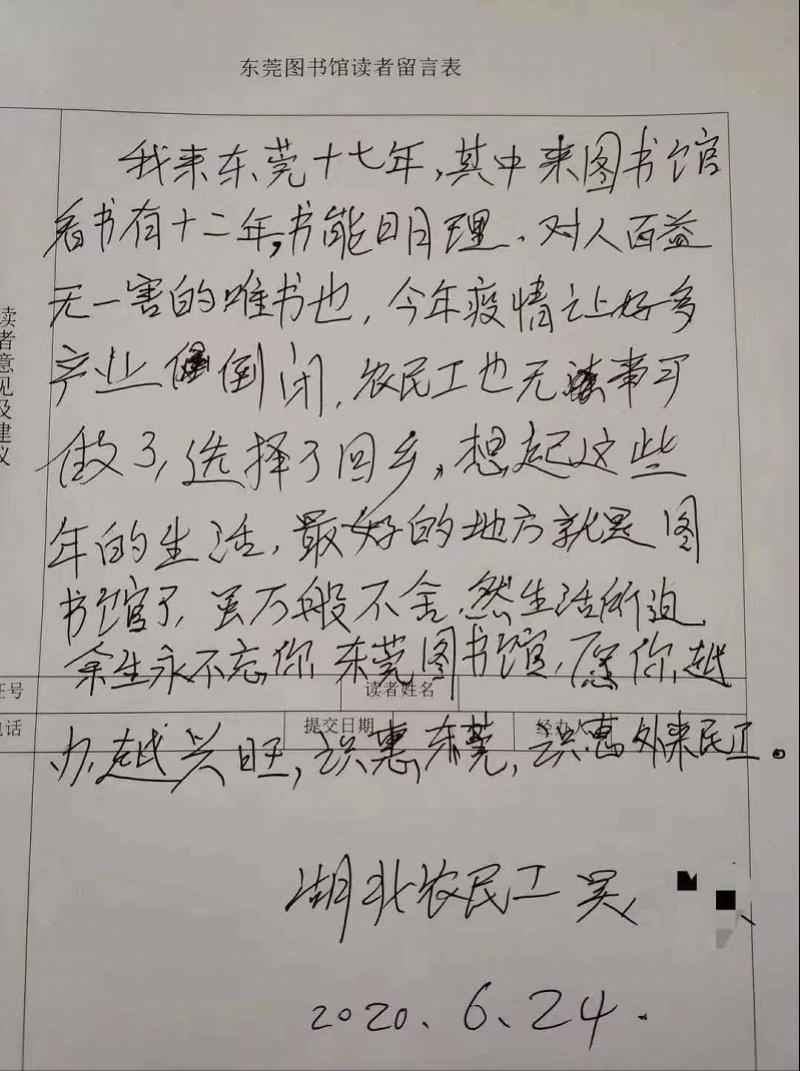 东莞图书馆读者留言表
我来东莞十七年,其中来图书馆
看书有十二年,书能明理、对人百益
无一害的唯书也,今年疫情让好多
产业倒闭,农民工也无事可
做了,选择了回乡,想起这些
年的生活,最好的地方就是图
书馆了,虽万般不舍,然生活所迫
余生永不忘你,东莞图书馆,愿你越
办越兴旺,识惠东莞,识惠外来民工。
湖北农民工 吴
2020、6、24.
读者意见及建议
证号
读者姓名
电话
提交日期
经办人